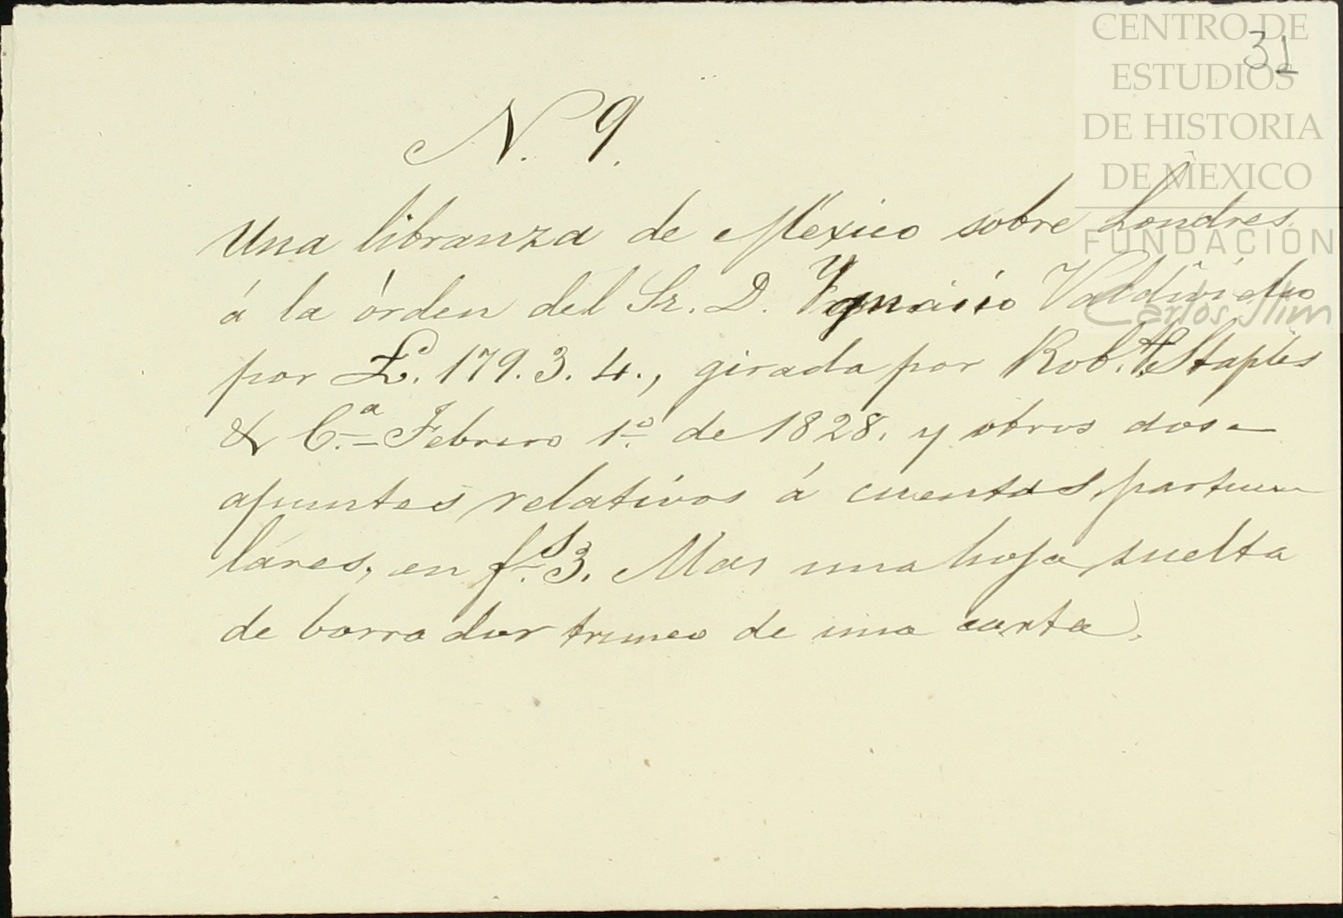 CENTRO DE
31
ESTUDIOS
DE HISTORIA
DE MEXICO
FUNDACIÓN
Carlos Slim
N. 9.
Una libranza de México sobre Londres,
á la órden del Sr. D. Ygnacio Valdivielso
por £. 179. 3. 4., girada por Rob.t Staples
& C.a Febrero 1.o de 1828. y otros dos
apuntes relativos á cuentas particu-
lares, en f.s 3. Mas una hoja suelta
de borrador trunco de una carta.